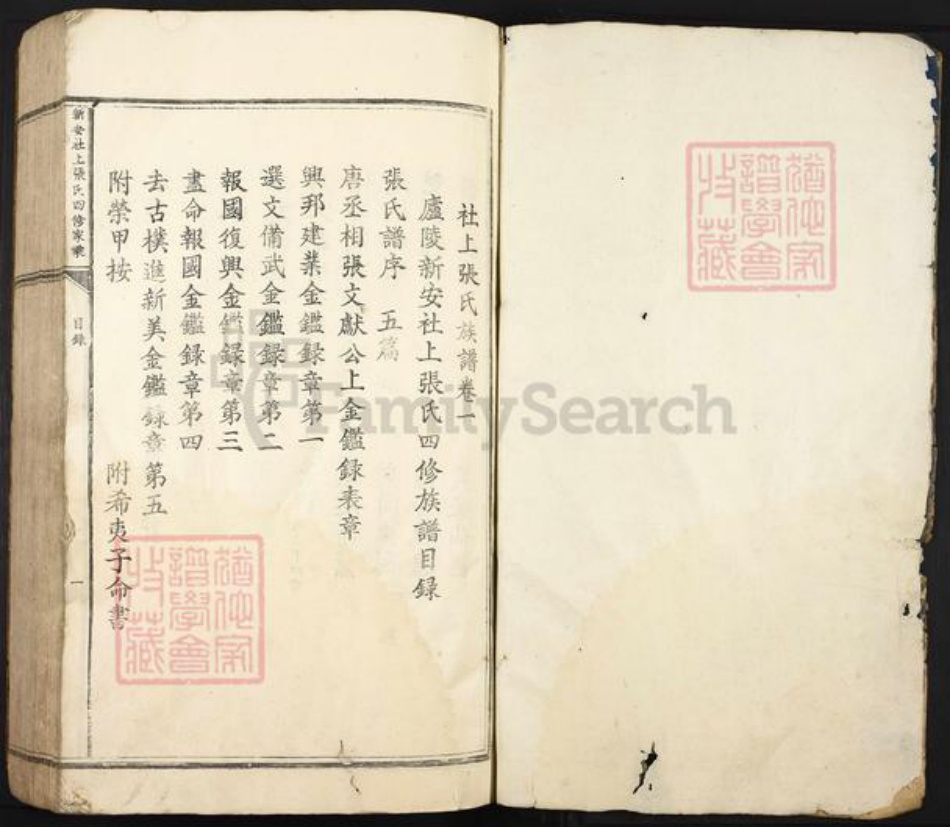 社上張氏族譜卷一
廬陵新安社上張氏四修族譜目録
張氏譜序　五篇
唐丞相張文獻公上金鑑録表章
興邦建業金鑑録章第一
選文備武金鑑録章第二
報國復興金鑑録章第三
盡命報國金鑑録章第四
去古樸進新美金鑑録章第五
附榮甲按　附希夷子命書
新安社上張氏四修家乘
目録
一
FamilySearch